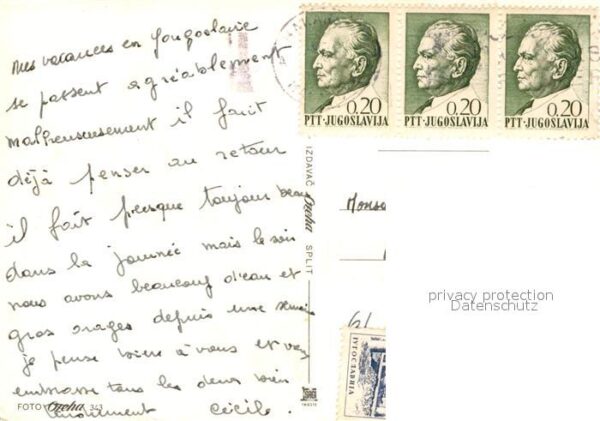 Mes vacances en Yougoslavie
se passent agréablement
malheureusement il faut
déjà penser au retour
il fait presque toujours beau
dans la journée mais le soir
nous avons beaucoup d'eau et
gros orages depuis une semaine
je pense bien à vous et vous
embrasse tous les deux bien
tendrement Cécile.
FOTO Ozeha 343
IZDAVAČ Ozeha SPLIT
0.20
PTT·JUGOSLAVIJA
0.20
PTT·JUGOSLAVIJA
0.20
PTT·JUGOSLAVIJA
Monse
61
privacy protection
Datenschutz